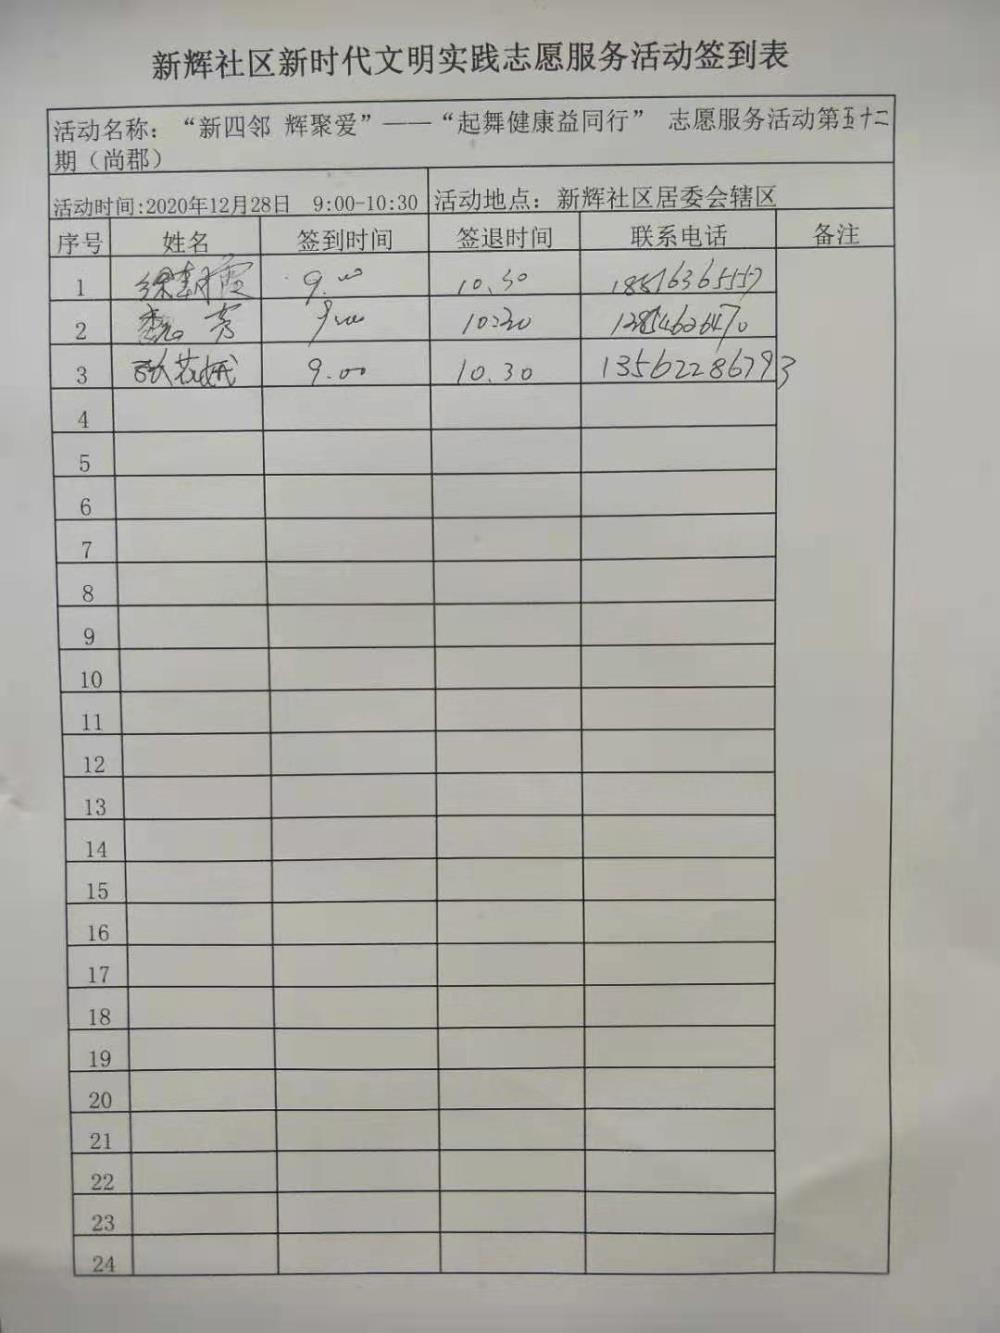 新辉社区新时代文明实践志愿服务活动签到表
活动名称：“新四邻 辉聚爱”——“起舞健康益同行” 志愿服务活动第五十二
期（尚郡）
活动时间:2020年12月28日 9:00-10:30 活动地点：新辉社区居委会辖区
序号 姓名 签到时间 签退时间 联系电话 备注
1 9.00 10.30
2 9:00 10:30
3 9.00 10.30 13562286793
4
5
6
7
8
9
10
11
12
13
14
15
16
17
18
19
20
21
22
23
24